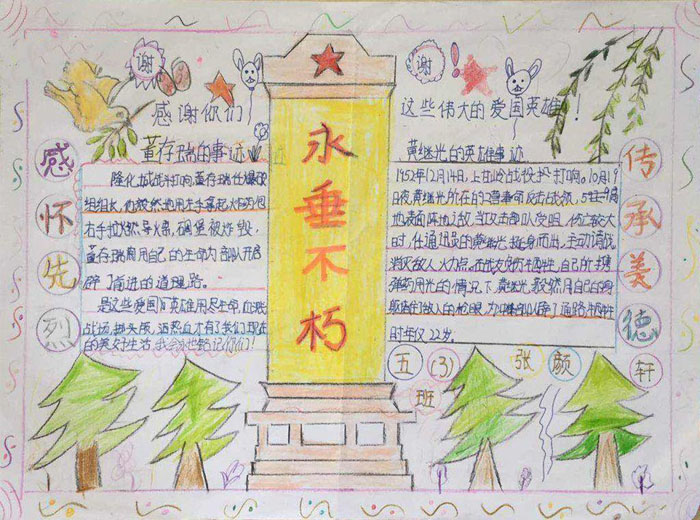 谢
谢
感谢你们
这些伟大的爱国英雄!
感怀先烈
永垂不朽
传承美德
董存瑞的事迹
隆化战斗打响,董存瑞任爆破
组组长,他毅然地用左手拿起火药包
右手拉燃导火索,碉堡被炸毁,
董存瑞用自己的生命为部队开
辟了前进的道路。
是这些爱国英雄用尽生命,血洒
战场,抛头颅,洒热血才有了我们现在
的美好生活
你们!
黄继光的英雄事迹
1952年10月14日,上甘岭战役打响。10月19
日夜,黄继光所在的2营奉命反击战领
地表面阵地之敌,当攻击部队受阻,伤亡较大
时,任通讯员的黄继光挺身而出,主动请战
消灭敌人火力点。
弹药用光的情况下,黄继光毅然用自己的胸
膛堵住敌人的枪眼,为冲锋部队
时年仅22岁。
五(3)班
张颜轩